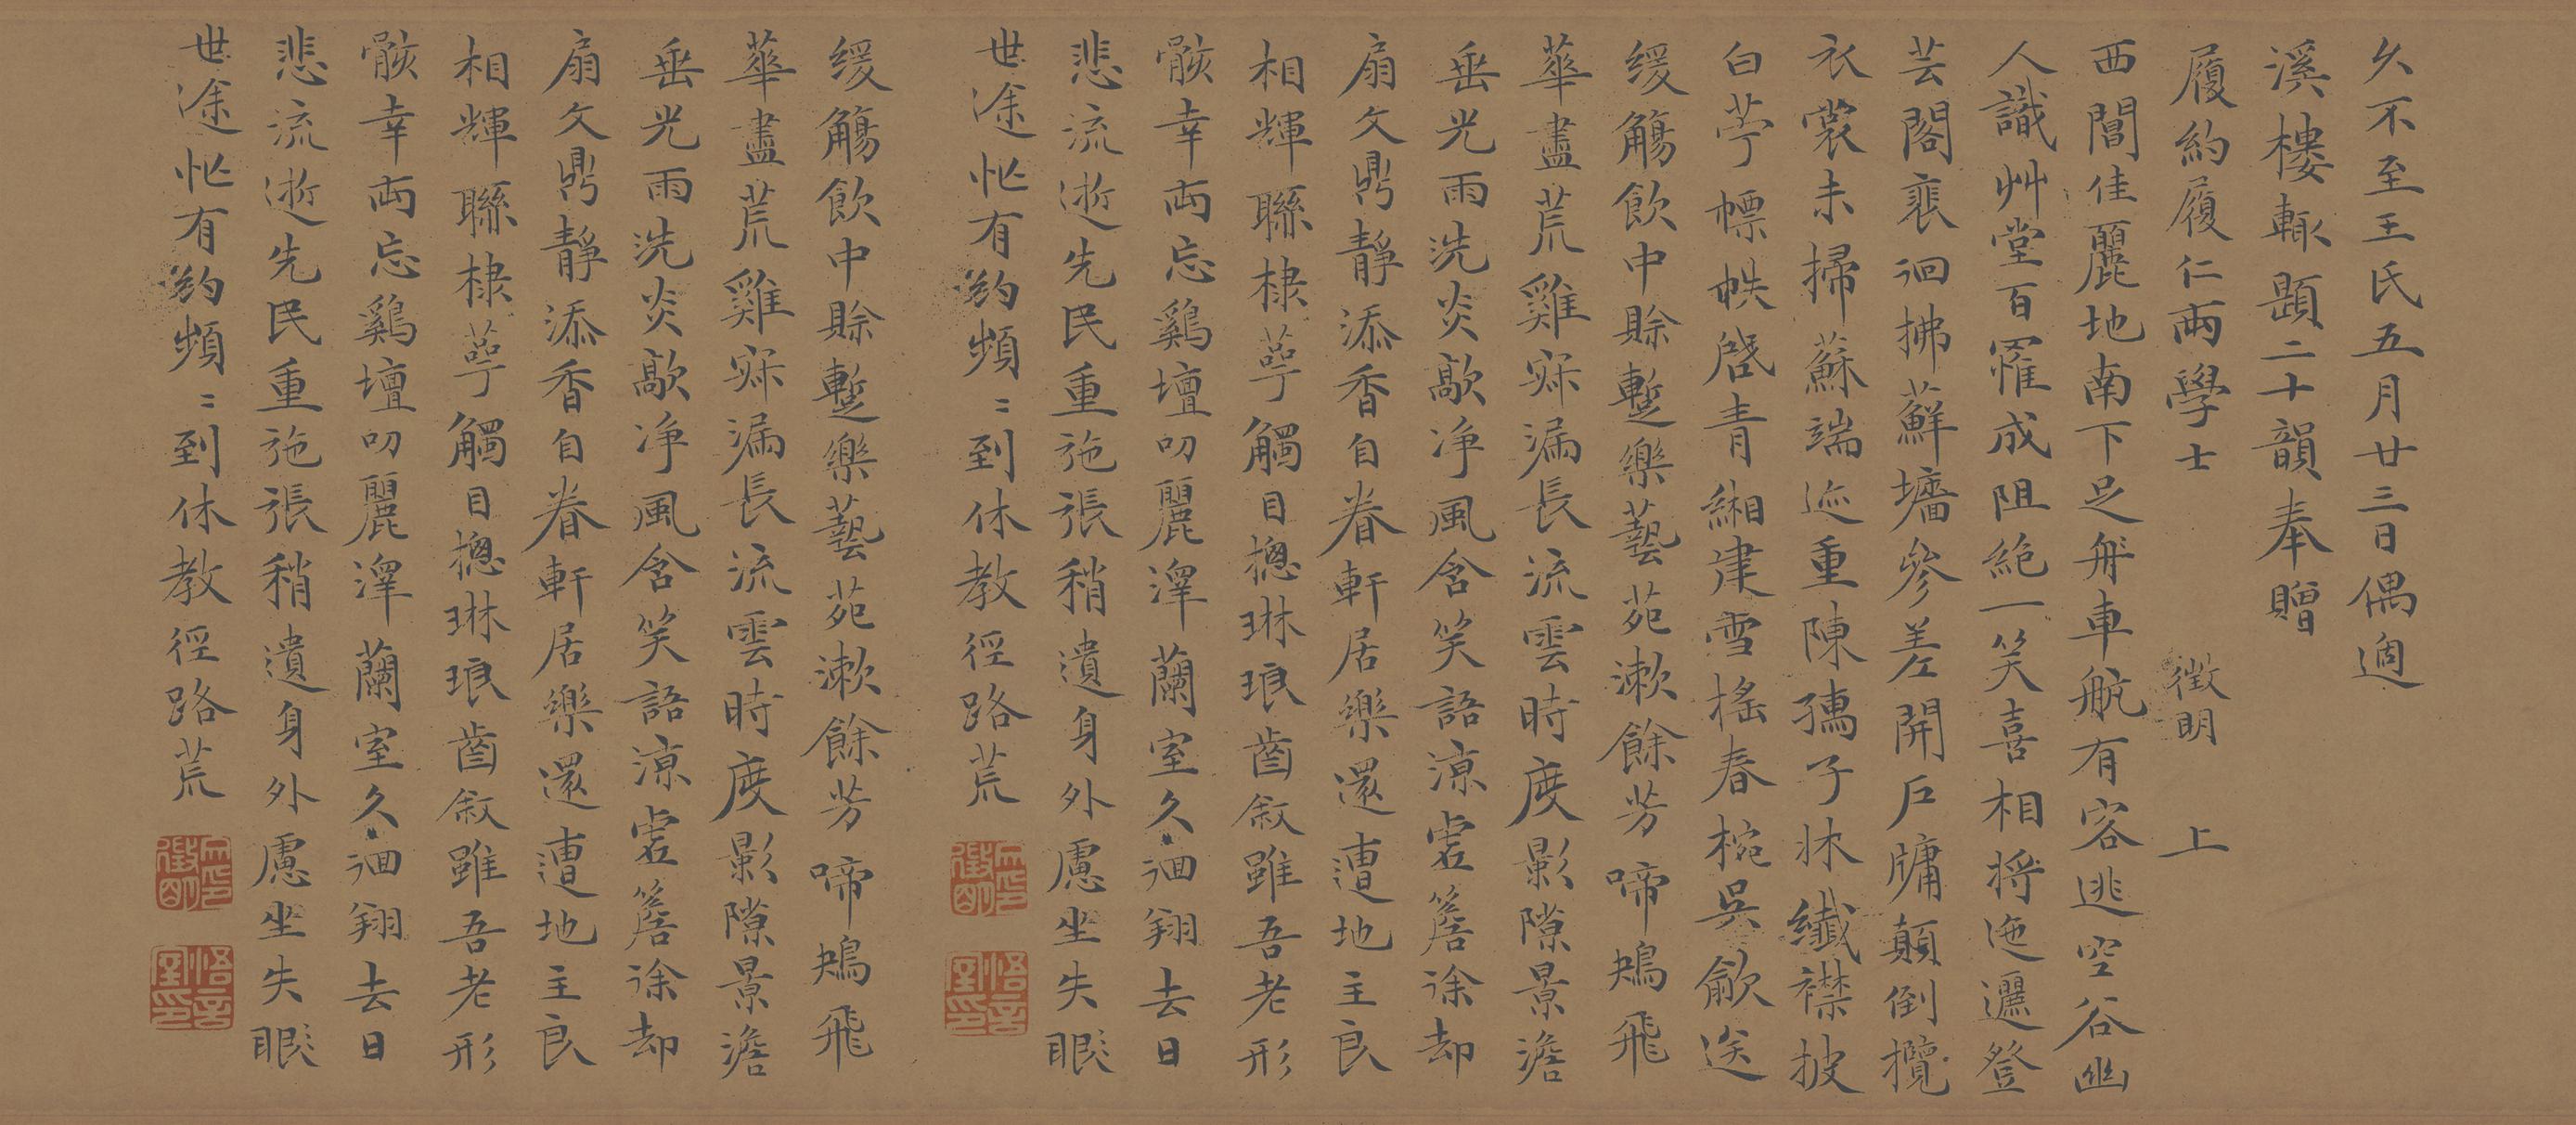 久不至王氏五月廿三日偶過
溪樓輙題二十韻奉贈
履約履仁兩學士 徵明 上
西閶佳麗地南下足舟車航有客逃空谷幽
人識艸堂百罹成阻絕一笑喜相將迤邐登
芸閣裵徊拂蘚墻參差開戶牖顛倒攬
衣裳未掃蘇端迹重陳孺子牀纖襟披
白苧幖帙啓青緗建雪搖春椀吳歈送
緩觴飲中賒蹔樂藝苑漱餘芳啼鴂飛
華盡荒雞寐漏長流雲時度影隙景澹
垂光雨洗炎歊净風含笑語涼虛簷徐却
扇文鼎靜添香自眷軒居樂還遭地主良
相輝聯棣萼觸目摠琳琅齒敘雖吾老形
骸幸両忘鷄壇叨麗澤蘭室久徊翔去日
悲流逝先民重施張稍遺身外慮坐失眼
世途忙有約頻〻到休教徑路荒
緩觴飲中賒蹔樂藝苑漱餘芳啼鴂飛
華盡荒雞寐漏長流雲時度影隙景澹
垂光雨洗炎歊净風含笑語涼虛簷徐却
扇文鼎靜添香自眷軒居樂還遭地主良
相輝聯棣萼觸目摠琳琅齒敘雖吾老形
骸幸両忘鷄壇叨麗澤蘭室久徊翔去日
悲流逝先民重施張稍遺身外慮坐失眼
世途忙有約頻〻到休教徑路荒